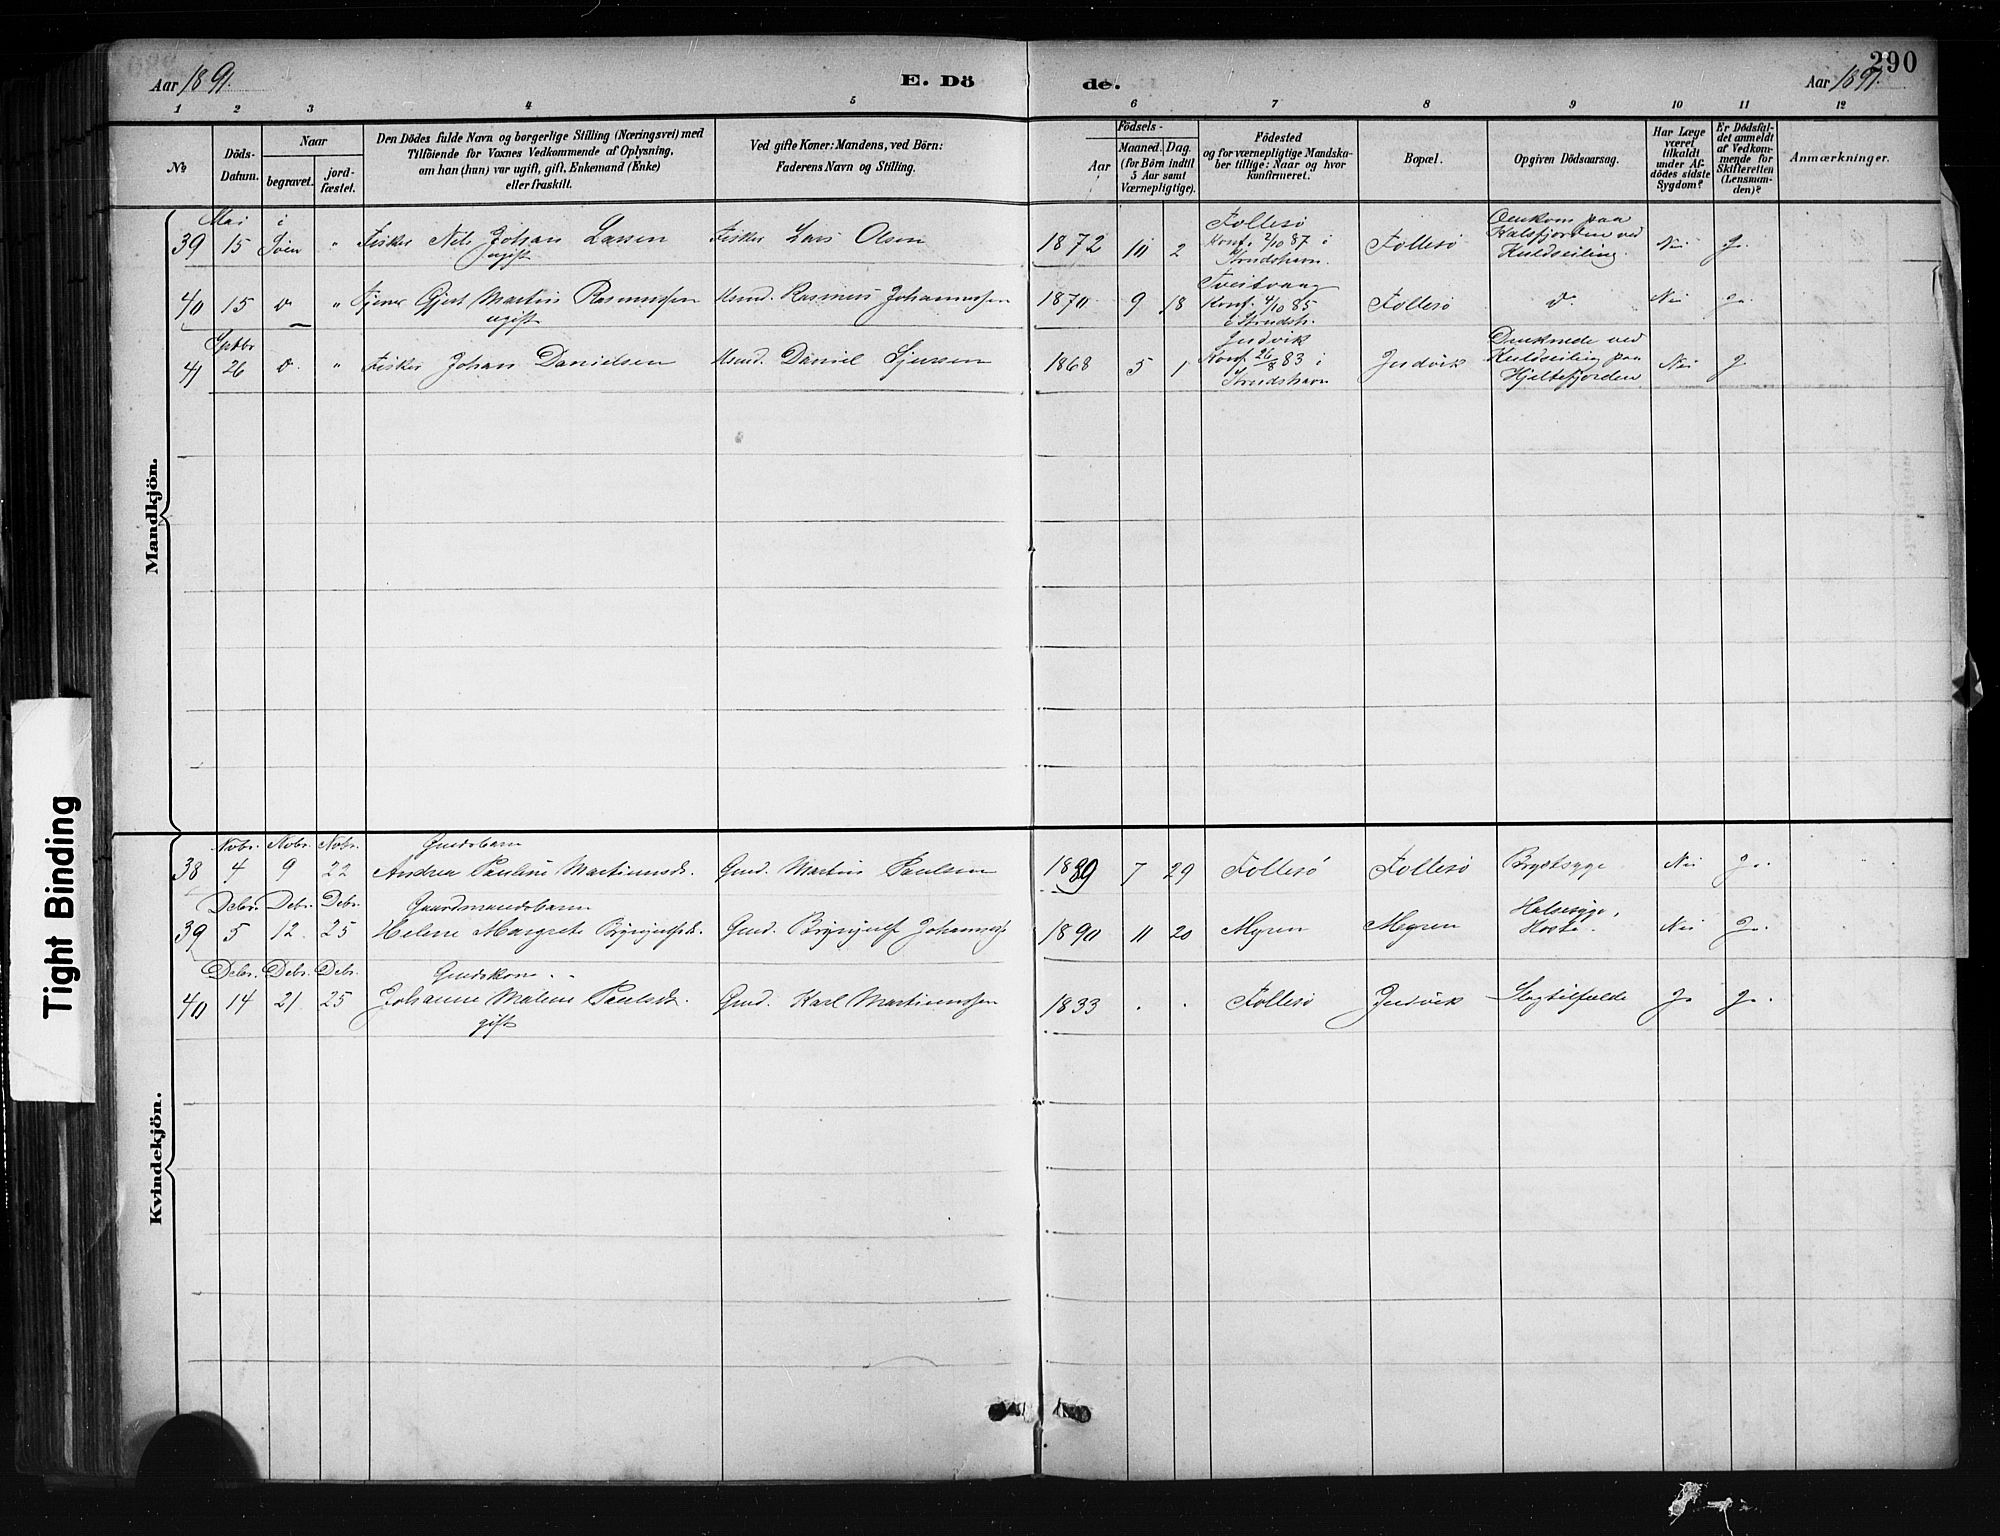 290
Aar 1891.
E. Dö
de.
Aar 1891.
1 2 3 4 5 6 7 8 9 10 11 12
No
Döds-
Datum.
Naar
begravet.
jord-
fæstet.
Den Dödes fulde Navn og borgerlige Stilling (Næringsvei) med
Tilföiende for Voxnes Vedkommende af Oplysning,
om han (hun) var ugift, gift, Enkemand (Enke)
eller fraskilt.
Ved gifte Koner: Mandens, ved Börn:
Faderens Navn og Stilling.
Födsels-
Aar
Maaned. Dag.
(for Börn indtil
5 Aar samt
Værnepligtige).
Födested
og for værnepligtige Mandska-
ber tillige: Naar og hvor
konfirmeret.
Bopæl.
Opgiven Dödsaarsag.
Har Læge
været
tilkaldt
under Af-
dödes sidste
Sygdom?
Er Dödsfal-
det anmeldt
af Vedkom-
mende for
Skifteretten
(Lensman-
den)?
Anmærkninger.
Mandkjön.
Mai i
39 15 Söen " Fisker Nils Johan Larsen Fisker Lars Olsen 1872 10 2
ugift
Follesö
Konf. 2/10 87 i
Strudshavn.
Follesö
Omkom paa
Halsfjorden ved
Kuldseiling.
Nei Ja.
40 15 " Tjener Gjert Martin Rasmussen Rasmus Johannessen 1870 9 18
ugift
Tveitvaag
Konf. 4/10 85
i Strudsh.
Follesö
Nei Ja.
Septbr
41 26 " Fisker Johan Danielsen Daniel Sjursen 1868 5 1
Indvik
Konf. 26/8 83 i
Strudshavn
Indvik
Druknede ved
Kuldseiling paa
Hjeltefjorden
Nei J
Kvindekjön.
Nobr. Nobr. Nobr.
38 4 9 22 Andrea Pauline Martinusd. Gmd. Martin Paulsen 1889 7 29 Follesö Follesö Brystsyge Nei Ja.
Debr. Debr. Debr. Gaardmandsbarn
39 5 12. 25 Helene Margrete Brynjulfsd. Gmd. Brynjulf Johanness 1890 11 20 Myren Myren
Halsesyge,
Hoste.
Nei Ja.
Debr. Debr. Debr. Gmdskone
40 14 21. 25 Johanne Malene Paulsd. Gmd. Karl Martinussen 1833 . . Follesö Indvik Slagtilfælde Ja Ja.
gift
Tight Binding